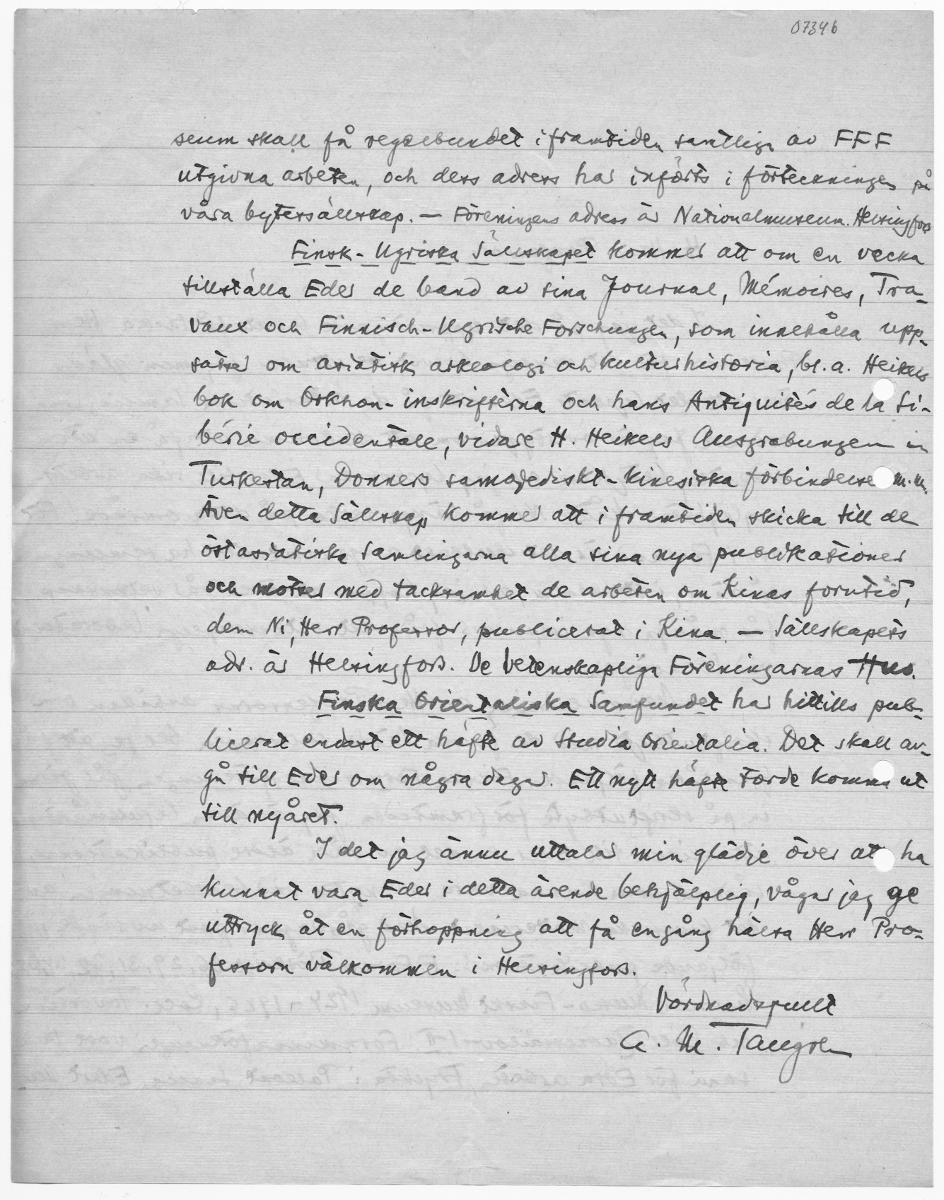 07346
seum skall få regelbundet i framtiden samtliga av FFF
utgivna arbeten, och dess adress har införts i förteckningen på
våra bytessällskap. — Föreningens adress är Nationalmuseum. Helsingfors
Finsk-Ugriska Sällskapet kommer att om en vecka
tillställa Eder de band av sina Journal, Mémoires, Tra-
vaux och Finnisch-Ugrische Forschungen, som innehålla upp-
satser om asiatisk arkeologi och kulturhistoria, bl. a. Heikels
bok om Orkhon-inskrifterna och hans Antiquités de la Si-
bérie occidentale, vidare H. Heikels Ausgrabungen in
Turkestan, Donners samojediskt-kinesiska förbindelser m.m.
Även detta Sällskap kommer att i framtiden skicka till de
östasiatiska samlingarna alla sina nya publikationer
och motser med tacksamhet de arbeten om Kinas forntid,
dem Ni, Herr Professor, publicerat i Kina. — Sällskapets
adr. är Helsingfors. De Vetenskapliga Föreningarnas Hus.
Finska Orientaliska Samfundet har hittills pub-
licerat endast ett häfte av Studia Orientalia. Det skall av-
gå till Eder om några dagar. Ett nytt häfte torde komma ut
till nyåret.
I det jag ännu uttalar min glädje över att ha
kunnat vara Eder i detta ärende behjälplig, vågar jag ge
uttryck åt en förhoppning att få en gång hälsa Herr Pro-
fessorn välkommen i Helsingfors.
Vördnadsfullt
A. M. Tallgren